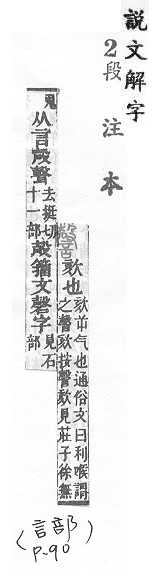 説文解字
2段注本
謦 欬也 欬屰气也通俗文曰利喉謂
之謦欬按謦欬見莊子徐無
鬼 从言殸聲 去挺切
十一部 殸籒文磬字 見石
部
(言部)
P.90